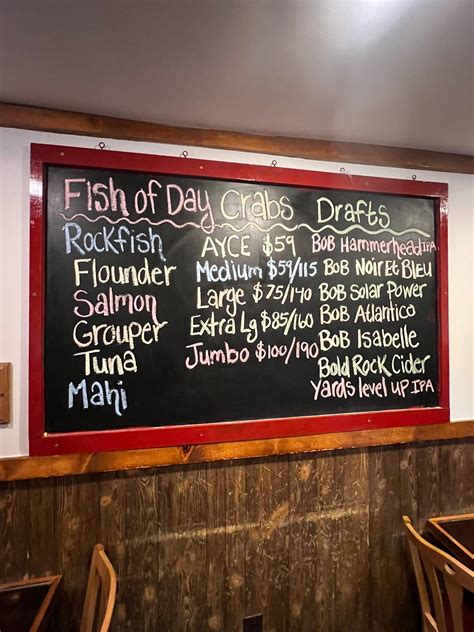 Fish of Day
Rockfish
Flounder
Salmon
Grouper
Tuna
Mahi
Crabs
AYCE $59
Medium $59/115
Large $75/140
Extra Lg $85/160
Jumbo $100/190
Drafts
BOB Hammerhead IPA
BOB Noir Et Bleu
BOB Solar Power
BOB Atlantico
BOB Isabelle
Bold Rock Cider
Yards level up IPA